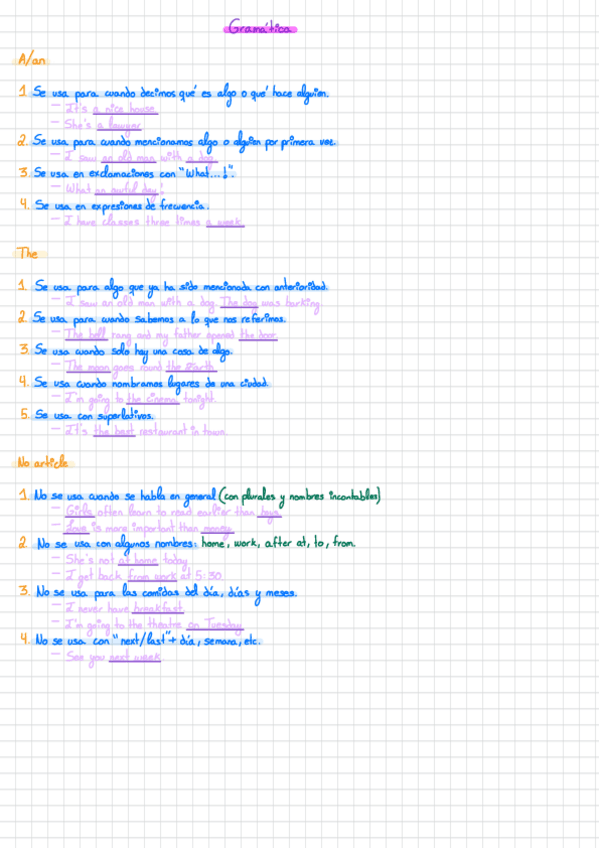 Gramática
A/an
1. Se usa para cuando decimos qué es algo o qué hace alguien.
– It's a nice house.
– She's a lawyer.
2. Se usa para cuando mencionamos algo o alguien por primera vez.
– I saw an old man with a dog.
3. Se usa en exclamaciones con "What...!".
– What an awful day!
4. Se usa en expresiones de frecuencia.
– I have classes three times a week.
The
1. Se usa para algo que ya ha sido mencionada con anterioridad.
– I saw an old man with a dog. The dog was barking.
2. Se usa para cuando sabemos a lo que nos referimos.
– The bell rang and my father opened the door.
3. Se usa cuando solo hay una cosa de algo.
– The moon goes round the Earth.
4. Se usa cuando nombramos lugares de una ciudad.
– I'm going to the cinema tonight.
5. Se usa con superlativos.
– It's the best restaurant in town.
No article
1. No se usa cuando se habla en general (con plurales y nombres incontables)
– Girls often learn to read earlier than boys.
– Love is more important than money.
2. No se usa con algunos nombres: home, work, after at, to, from.
– She's not at home today.
– I get back from work at 5:30.
3. No se usa para las comidas del día, días y meses.
– I never have breakfast.
– I'm going to the theatre on Tuesday.
4. No se usa con "next/last" + día, semana, etc.
– See you next week.